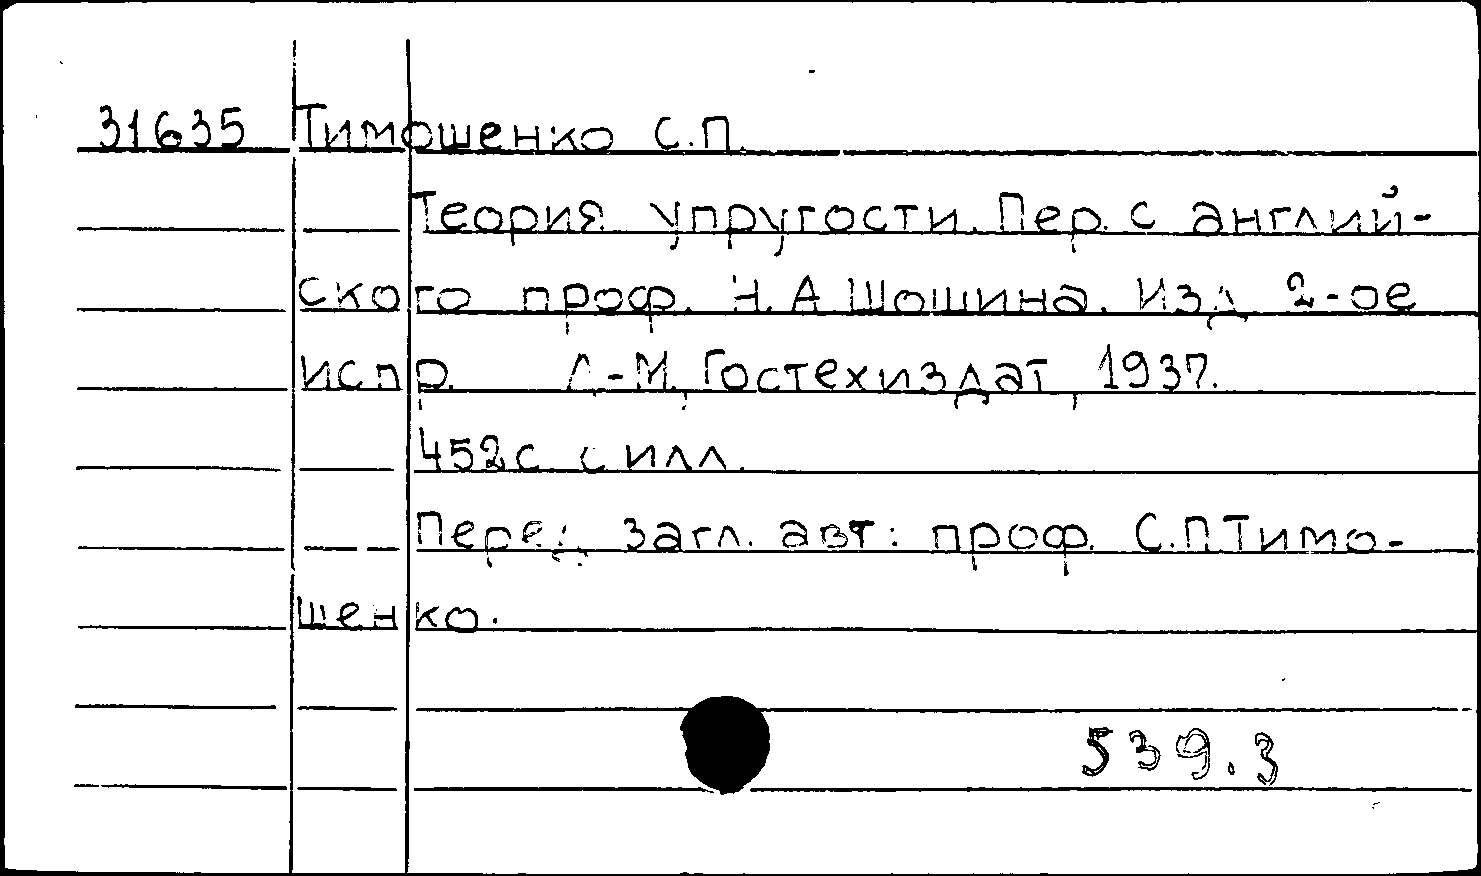 31635 Тимошенко С.П.
Теория упругости. Пер. с англий-
ского проф. Н.А Шошина. Изд 2-ое
испр. Л.-М, Гостехиздат, 1937.
452с. с илл.
Перед загл. авт: проф. С.П Тимо-
шенко.
539.3